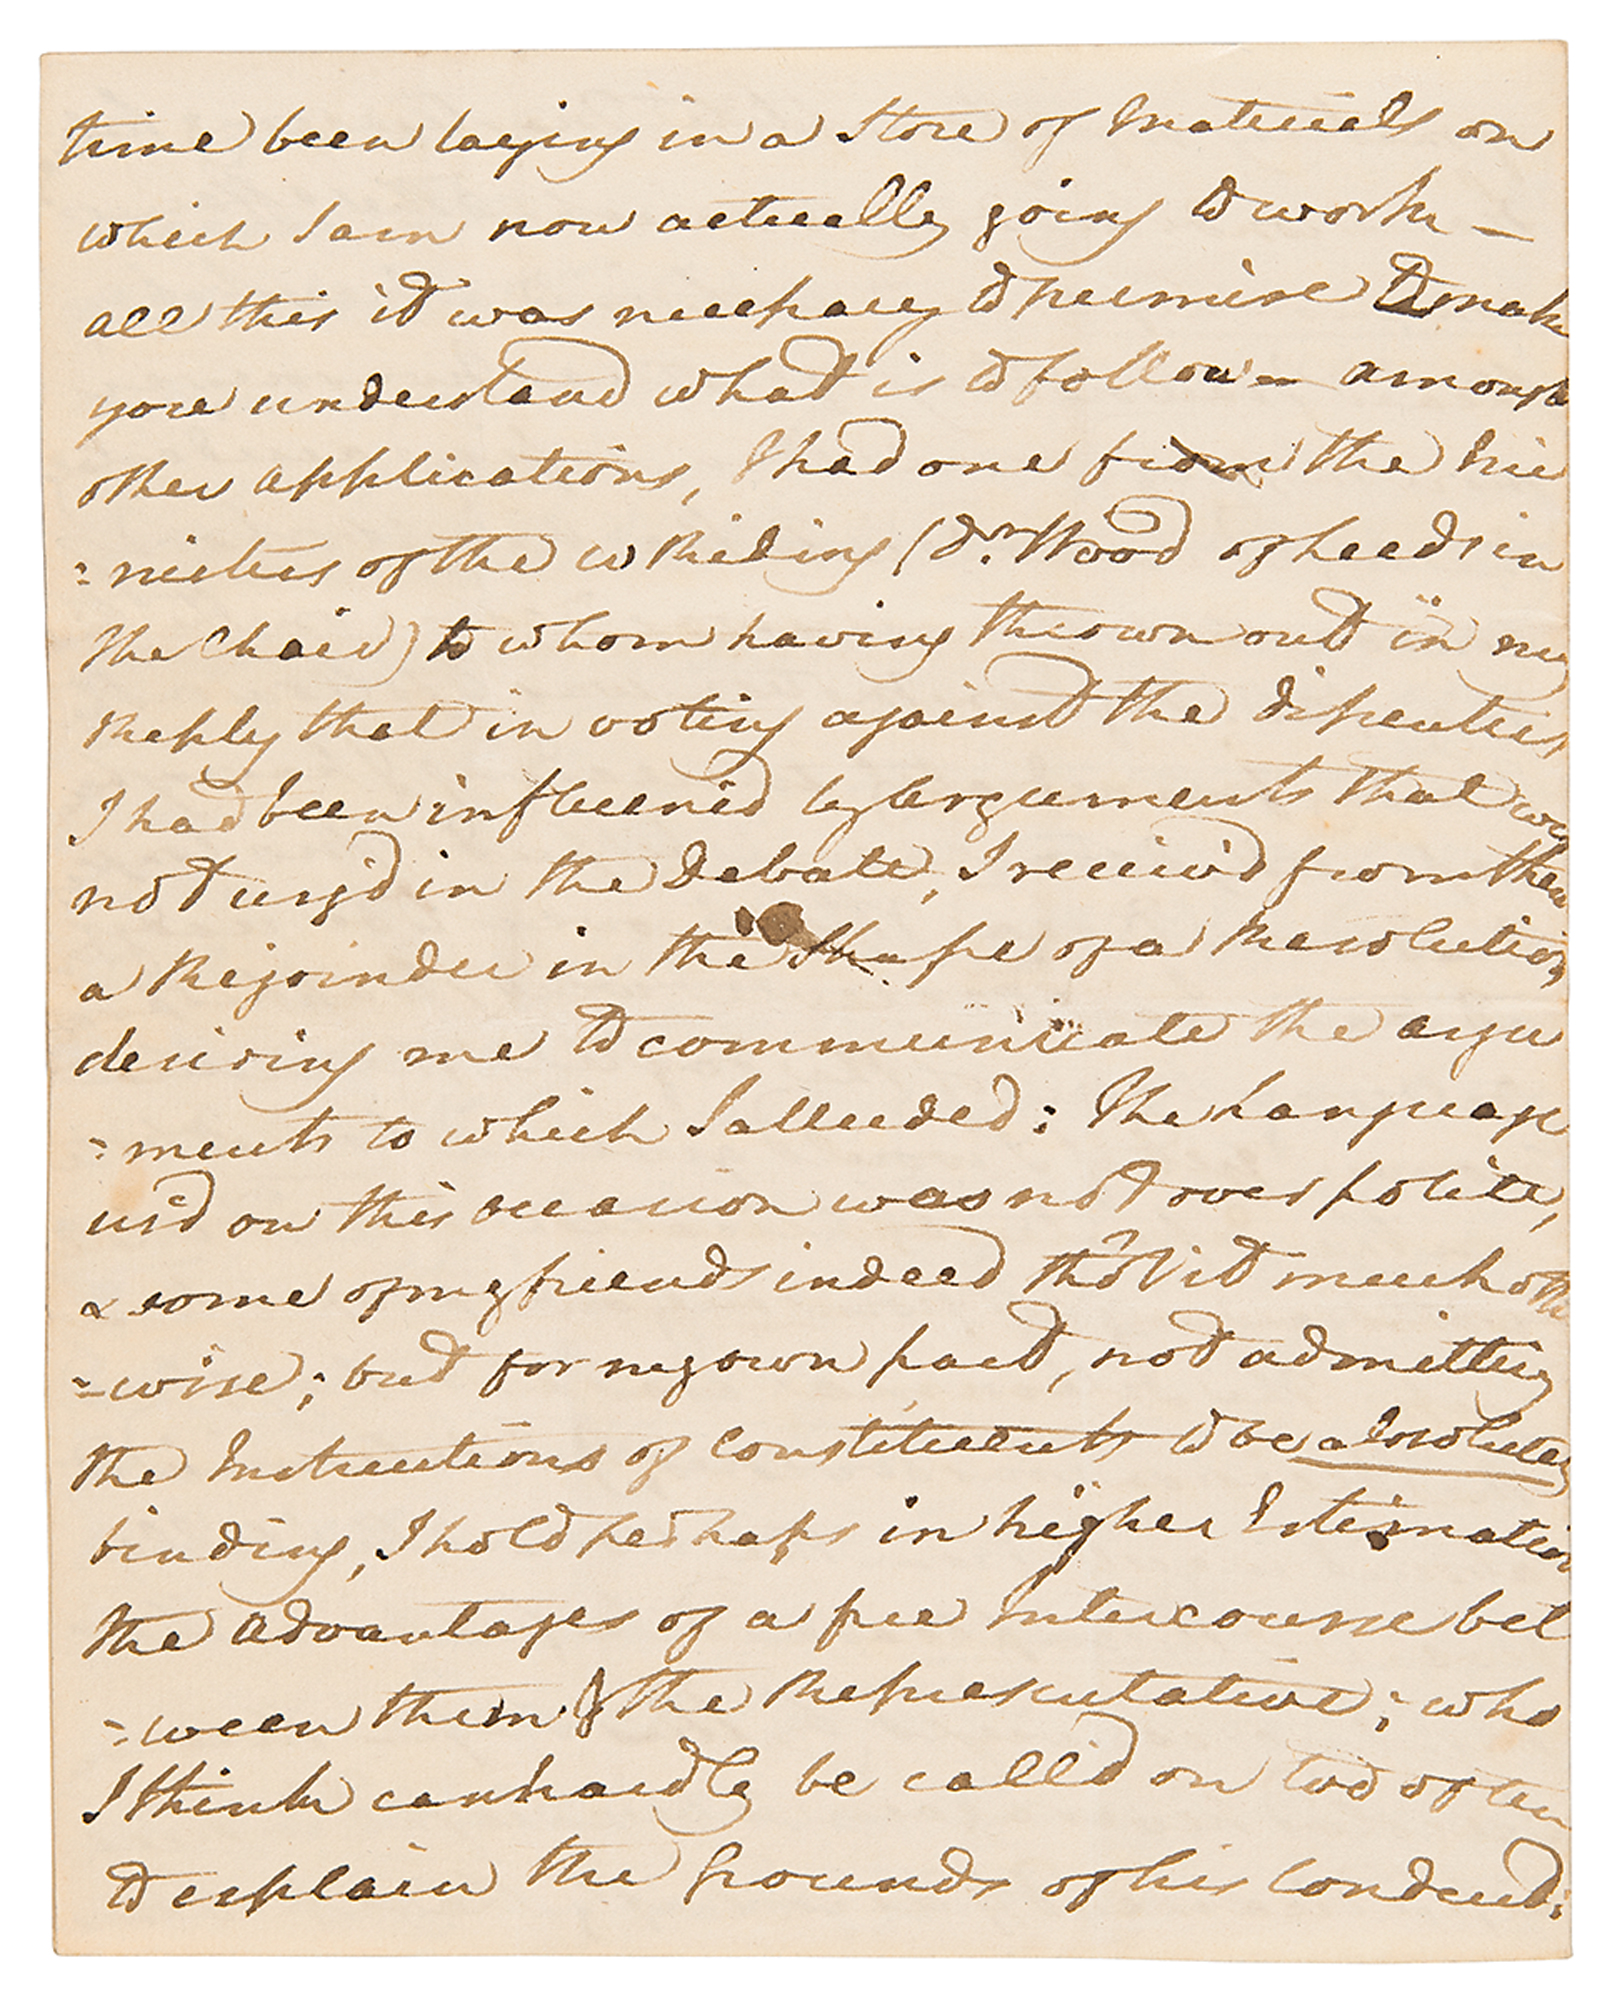 time been laying in a Store of Materials on
which I am now actually going to work —
all this it was necessary to premise to make
you understand what is to follow — amongst
other applications, I had one from the Mi
=nisters of the W Riding (Dr. Wood of Leeds in
the Chair) to whom having thrown out in my
Reply that in voting against the dissenters
I had been influenced by Arguments that were
not urg'd in the Debate, I receiv'd from them
a Rejoinder in the Shape of a Resolution,
desiring me to communicate the argu
=ments to which I alluded: The Language
us'd on this occasion was not over polite,
& some of my friends indeed tho't it much other
=wise; but for my own part, not admitting
the Instructions of Constituents to be absolutely
binding, I hold perhaps in higher Estimation
the advantages of a free Intercourse bet
=ween them & the Representative; who
I think can hardly be call'd on too often
to explain the Grounds of his Conduct: